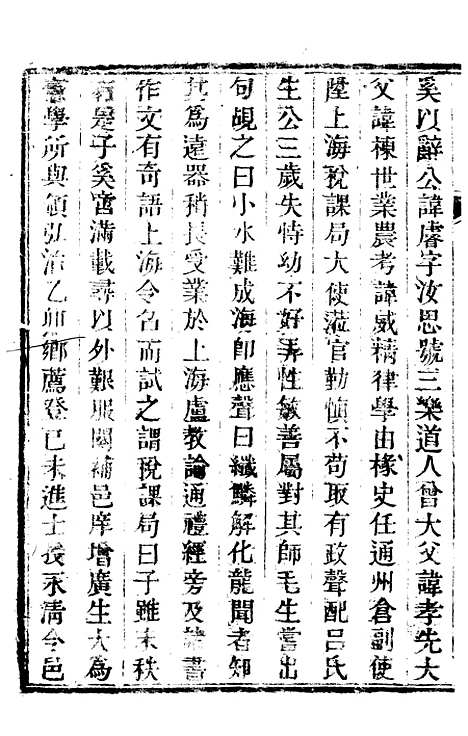 奚以辭公諱𪾢字汝思號三樂道人曾大父諱孝先大
父諱棟世業農考諱威精律學由椽史任通州倉副使
陞上海稅課局大使蒞官勤慎不苟取有政聲配呂氏
生公三歲失恃幼不好弄性敏善屬對其師毛生嘗出
句覘之曰小水難成海卽應聲曰纖鱗解化龍聞者知
其爲遠器稍長受業於上海盧教諭通禮經旁及諸書
作文有奇語上海令名而試之謂稅課局曰子雖末秩
有是子奚啻滿載尋以外艱服闋補邑庠增廣生大爲
學所與領弘治乙卯鄉薦登己未進士授永淸令邑